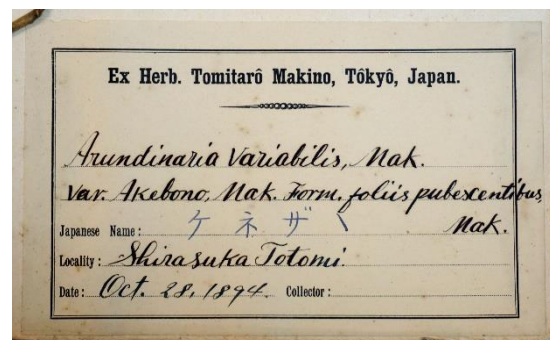 Ex Herb. Tomitarô Makino, Tôkyô, Japan.
Arundinaria Variabilis, Mak.
Var. Akebono, Mak. Form. foliis pubescentibus,
Mak.
Japanese Name: ケネザヽ
Locality: Shirasuka Totomi.
Date: Oct. 28, 1894. Collector: